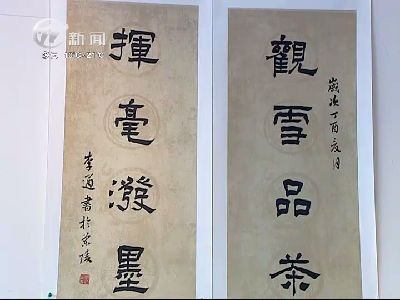 新闻
觀雪品茶
歲次丁酉亥月
揮毫潑墨
李書於陵